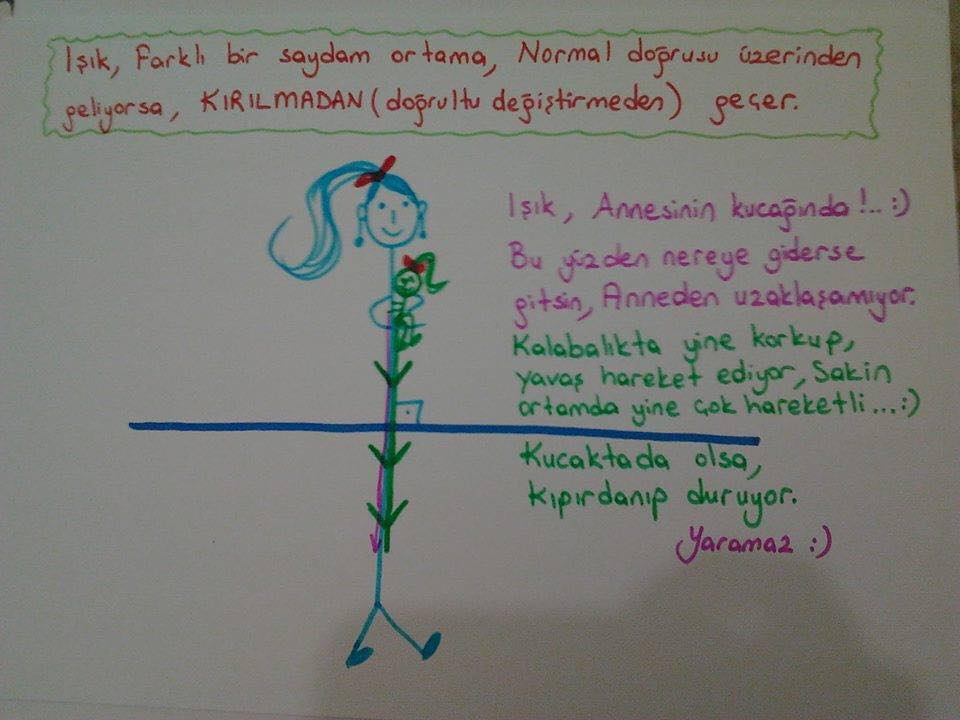 Işık, Farklı bir saydam ortama, Normal doğrusu üzerinden
geliyorsa, KIRILMADAN (doğrultu değiştirmeden) geçer.
Işık, Annesinin kucağında!.. :)
Bu yüzden nereye giderse
gitsin, Anneden uzaklaşamıyor.
Kalabalıkta yine korkup,
yavaş hareket ediyor, Sakin
ortamda yine çok hareketli...:)
Kucaktada olsa,
kıpırdanıp duruyor.
Yaramaz :)